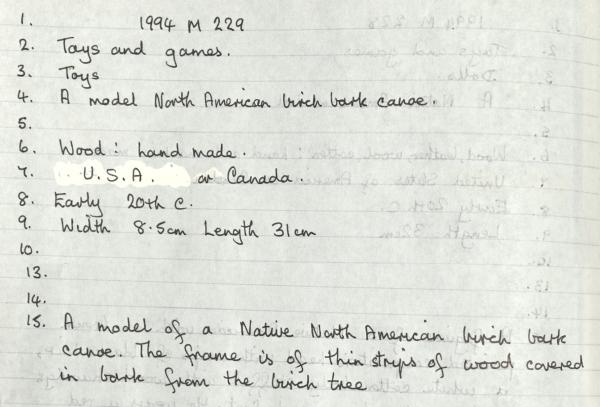 1. 1994 M 229
2. Toys and games.
3. Toys
4. A model North American birch bark canoe.
5.
6. Wood : hand made.
7. U.S.A. or Canada.
8. Early 20th C.
9. Width 8.5cm Length 31cm
10.
13.
14.
15. A model of a Native North American birch bark
canoe. The frame is of thin strips of wood covered
in bark from the birch tree